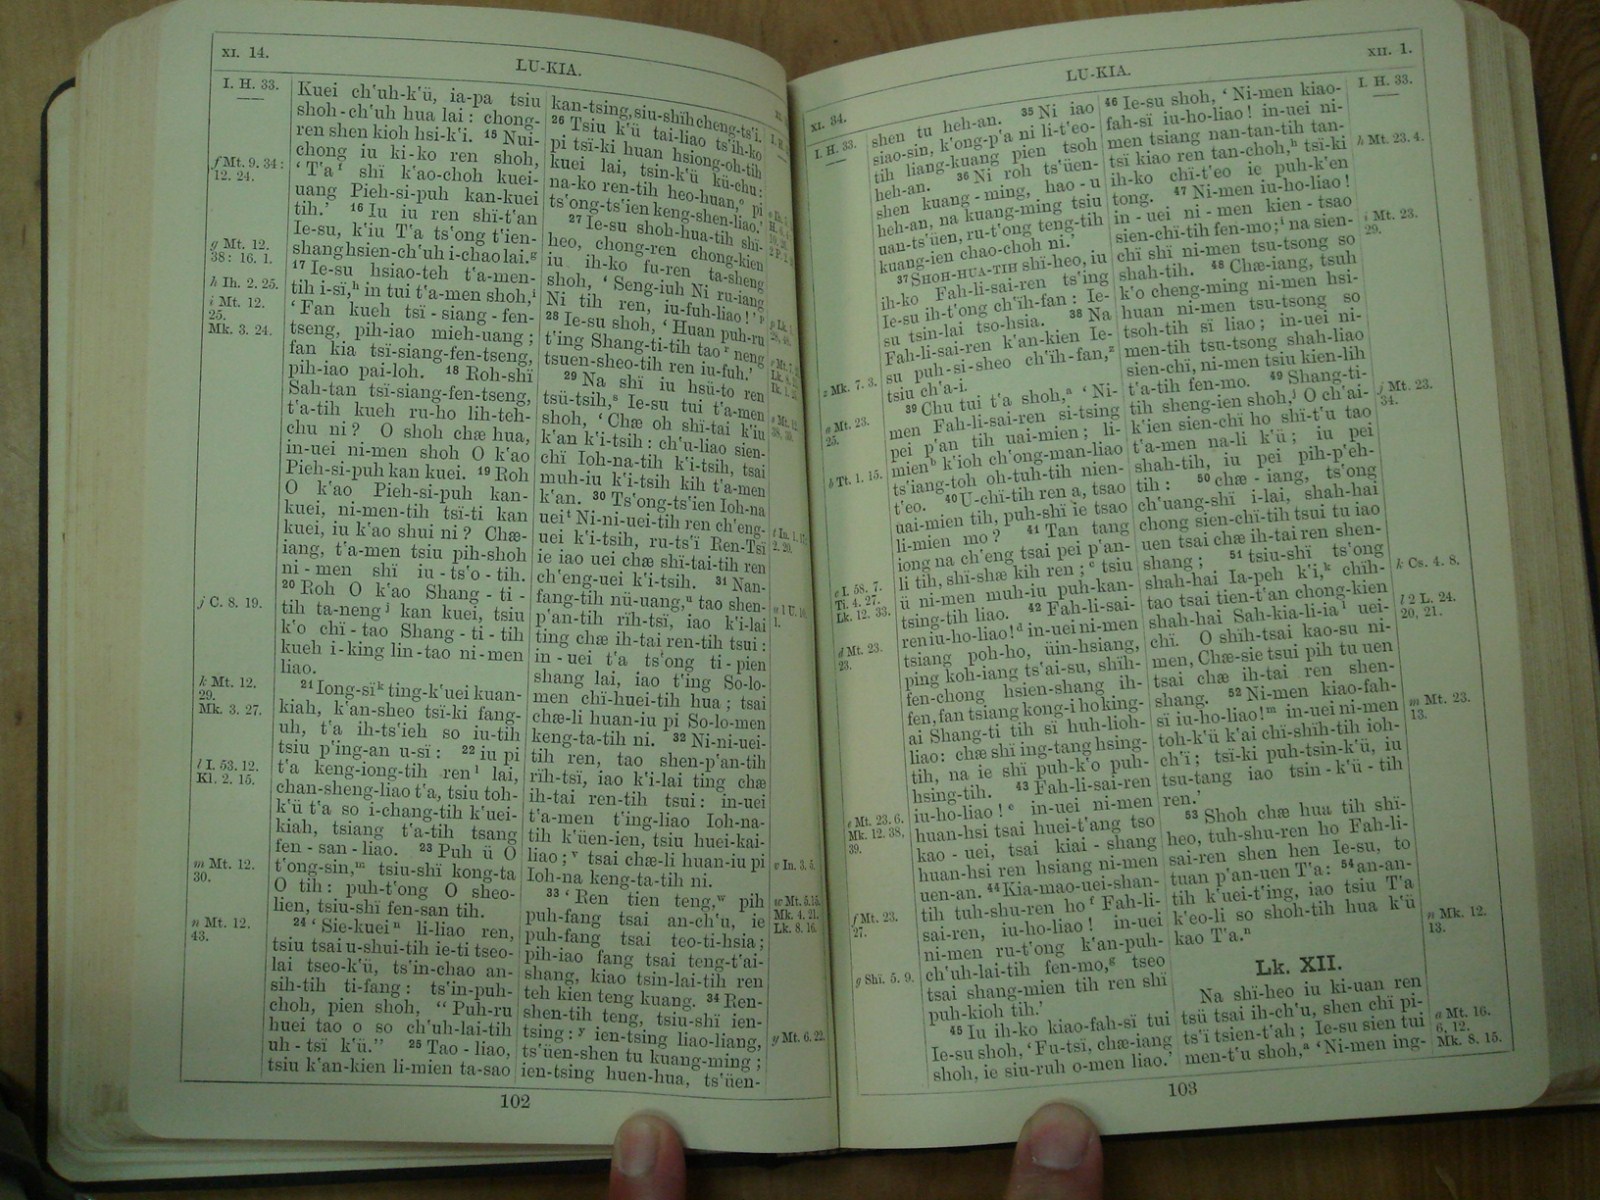 XI. 14.
LU-KIA.
I. H. 33.
f Mt. 9. 34:
12. 24.
g Mt. 12.
38: 16. 1.
h Ih. 2. 25.
i Mt. 12.
25.
Mk. 3. 24.
j C. 8. 19.
k Mt. 12.
29.
Mk. 3. 27.
l I. 53. 12.
Kl. 2. 15.
m Mt. 12.
30.
n Mt. 12.
43.
Kuei ch'uh-k'ü, ia-pa tsiu
shoh-ch'uh hua lai: chong-
ren shen kioh hsi-k'i. 15 Nui-
chong iu ki-ko ren shoh,
'T'a f shï k'ao-choh kuei-
uang Pieh-si-puh kan-kuei
tih.' 16 Iu iu ren shï-t'an
Ie-su, k'iu T'a ts'ong t'ien-
shang hsien-ch'uh i-chao lai.g
17 Ie-su hsiao-teh t'a-men-
tih i-sï,h in tui t'a-men shoh,i
'Fan kueh tsï-siang-fen-
tseng, pih-iao mieh-uang;
fan kia tsï-siang-fen-tseng,
pih-iao pai-loh. 18 Roh-shï
Sah-tan tsï-siang-fen-tseng,
t'a-tih kueh ru-ho lih-teh-
chu ni? O shoh chæ hua,
in-uei ni-men shoh O k'ao
Pieh-si-puh kan kuei. 19 Roh
O k'ao Pieh-si-puh kan-
kuei, ni-men-tih tsï-ti kan
kuei, iu k'ao shui ni? Chæ-
iang, t'a-men tsiu pih-shoh
ni-men shï iu-ts'o-tih.
20 Roh O k'ao Shang-ti-
tih ta-neng j kan kuei, tsiu
k'o chï-tao Shang-ti-tih
kueh i-king lin-tao ni-men
liao.
21 Iong-sï k ting-k'uei kuan-
kiah, k'an-sheo tsï-ki fang-
uh, t'a ih-ts'ieh so iu-tih
tsiu p'ing-an u-sï: 22 iu pi
t'a keng-iong-tih ren l lai,
chan-sheng-liao t'a, tsiu toh-
k'ü t'a so i-chang-tih k'uei-
kiah, tsiang t'a-tih tsang
fen-san-liao. 23 Puh ü O
t'ong-sin,m tsiu-shï kong-ta
O tih: puh-t'ong O sheo-
lien, tsiu-shï fen-san tih.
24 'Sie-kuei n li-liao ren,
tsiu tsai u-shui-tih ie-ti tseo-
lai tseo-k'ü, ts'in-chao an-
sih-tih ti-fang: ts'in-puh-
choh, pien shoh, "Puh-ru
huei tao o so ch'uh-lai-tih
uh-tsï k'ü." 25 Tao-liao,
tsiu k'an-kien li-mien ta-sao
kan-tsing, siu-shïh cheng-ts'i.
26 Tsiu k'ü tai-liao ts'ih-ko
pi tsï-ki huan hsiong-oh-tih
kuei lai, tsin-k'ü kü-chu:
na-ko ren-tih heo-huan,o pi
ts'ong-ts'ien keng-shen-liao.'
27 Ie-su shoh-hua-tih shï-
heo, chong-ren chong-kien
iu ih-ko fu-ren ta-sheng
shoh, 'Seng-iuh Ni ru-iang
Ni tih ren, iu-fuh-liao!' p
28 Ie-su shoh, 'Huan puh-ru
t'ing Shang-ti-tih tao r neng
tsuen-sheo-tih ren iu-fuh.'
29 Na shï iu hsü-to ren
tsü-tsih,s Ie-su tui t'a-men
shoh, 'Chæ oh shï-tai k'iu
k'an k'i-tsih: ch'u-liao sien-
chï Ioh-na-tih k'i-tsih, tsai
muh-iu k'i-tsih kih t'a-men
k'an. 30 Ts'ong-ts'ien Ioh-na
uei t Ni-ni-uei-tih ren ch'eng-
uei k'i-tsih, ru-ts'ï Ren-Tsï
ie iao uei chæ shï-tai-tih ren
ch'eng-uei k'i-tsih. 31 Nan-
fang-tih nü-uang,u tao shen-
p'an-tih rïh-tsï, iao k'i-lai
ting chæ ih-tai ren-tih tsui:
in-uei t'a ts'ong ti-pien
shang lai, iao t'ing So-lo-
men chï-huei-tih hua; tsai
chæ-li huan-iu pi So-lo-men
keng-ta-tih ni. 32 Ni-ni-uei-
tih ren, tao shen-p'an-tih
rïh-tsï, iao k'i-lai ting chæ
ih-tai ren-tih tsui: in-uei
t'a-men t'ing-liao Ioh-na-
tih k'üen-ien, tsiu huei-kai-
liao;v tsai chæ-li huan-iu pi
Ioh-na keng-ta-tih ni.
33 'Ren tien teng,w pih
puh-fang tsai an-ch'u, ie
puh-fang tsai teo-ti-hsia;
pih-iao fang tsai teng-t'ai-
shang, kiao tsin-lai-tih ren
teh kien teng kuang. 34 Ren-
shen-tih teng, tsiu-shï ien-
tsing:y ien-tsing liao-liang,
ts'üen-shen tu kuang-ming;
ien-tsing huen-hua, ts'üen-
v In. 3. 5.
w Mt. 5. 15.
Mk. 4. 21.
Lk. 8. 16.
y Mt. 6. 22.
102
XI. 34.
LU-KIA.
XII. 1.
I. H. 33.
z Mk. 7. 3.
a Mt. 23.
25.
b Tt. 1. 15.
c I. 58. 7.
Ti. 4. 27.
Lk. 12. 33.
d Mt. 23.
23.
e Mt. 23. 6.
Mk. 12. 38,
39.
f Mt. 23.
27.
g Shï. 5. 9.
shen tu heh-an. 35 Ni iao
siao-sin, k'ong-p'a ni li-t'eo-
tih liang-kuang pien tsoh
heh-an. 36 Ni roh ts'üen-
shen kuang-ming, hao-u
heh-an, na kuang-ming tsiu
uan-ts'üen, ru-t'ong teng-tih
kuang-ien chao-choh ni.'
37 SHOH-HUA-TIH shï-heo, iu
ih-ko Fah-li-sai-ren ts'ing
Ie-su ih-t'ong ch'ïh-fan: Ie-
su tsin-lai tso-hsia. 38 Na
Fah-li-sai-ren k'an-kien Ie-
su puh-si-sheo ch'ïh-fan,z
tsiu ch'a-i.
39 Chu tui t'a shoh,a 'Ni-
men Fah-li-sai-ren si-tsing
pei p'an tih uai-mien; li-
mien b k'ioh ch'ong-man-liao
ts'iang-toh oh-tuh-tih nien-
t'eo. 40 U-chï-tih ren a, tsao
uai-mien tih, puh-shï ie tsao
li-mien mo? 41 Tan tang
iong na ch'eng tsai pei p'an-
li tih, shï-shæ kih ren;c tsiu
ü ni-men muh-iu puh-kan-
tsing-tih liao. 42 Fah-li-sai-
ren iu-ho-liao!d in-uei ni-men
tsiang poh-ho, üin-hsiang,
ping koh-iang ts'ai-su, shïh-
fen-chong hsien-shang ih-
fen, fan tsiang kong-i ho king-
ai Shang-ti tih sï huh-lioh-
liao: chæ shï ing-tang hsing-
tih, na ie shï puh-k'o puh-
hsing-tih. 43 Fah-li-sai-ren
iu-ho-liao!e in-uei ni-men
huan-hsi tsai huei-t'ang tso
kao-uei, tsai kiai-shang
huan-hsi ren hsiang ni-men
uen-an. 44 Kia-mao-uei-shan-
tih tuh-shu-ren ho f Fah-li-
sai-ren, iu-ho-liao! in-uei
ni-men ru-t'ong k'an-puh-
ch'uh-lai-tih fen-mo,g tseo
tsai shang-mien tih ren shï
puh-kioh tih.'
45 Iu ih-ko kiao-fah-sï tui
Ie-su shoh, 'Fu-tsï, chæ-iang
shoh, ie siu-ruh o-men liao.'
46 Ie-su shoh, 'Ni-men kiao-
fah-sï iu-ho-liao! in-uei ni-
men tsiang nan-tan-tih tan-
tsï kiao ren tan-choh,h tsï-ki
ih-ko chï-t'eo ie puh-k'en
tong. 47 Ni-men iu-ho-liao!
in-uei ni-men kien-tsao
sien-chï-tih fen-mo;i na sien-
chï shï ni-men tsu-tsong so
shah-tih. 48 Chæ-iang, tsuh
k'o cheng-ming ni-men hsi-
huan ni-men tsu-tsong so
tsoh-tih sï liao; in-uei ni-
men-tih tsu-tsong shah-liao
sien-chï, ni-men tsiu kien-lih
t'a-tih fen-mo. 49 Shang-ti-
tih sheng-ien shoh,j O ch'ai-
k'ien sien-chï ho shï-t'u tao
t'a-men na-li k'ü; iu pei
shah-tih, iu pei pih-p'eh-
tih: 50 chæ-iang, ts'ong
ch'uang-shï i-lai, shah-hai
chong sien-chï-tih tsui tu iao
uen tsai chæ ih-tai ren shen-
shang; 51 tsiu-shï ts'ong
shah-hai Ia-peh k'i,k chïh-
tao tsai tien-t'an chong-kien
shah-hai Sah-kia-li-ia l uei-
chï. O shïh-tsai kao-su ni-
men, Chæ-sie tsui pih tu uen
tsai chæ ih-tai ren shen-
shang. 52 Ni-men kiao-fah-
sï iu-ho-liao!m in-uei ni-men
toh-k'ü k'ai chï-shïh-tih ioh-
ch'ï; tsï-ki puh-tsin-k'ü, iu
tsu-tang iao tsin-k'ü-tih
ren.'
53 Shoh chæ hua tih shï-
heo, tuh-shu-ren ho Fah-li-
sai-ren shen hen Ie-su, to
tuan p'an-uen T'a: 54 an-an-
tih k'uei-t'ing, iao tsiu T'a
k'eo-li so shoh-tih hua k'ü
kao T'a.n
Lk. XII.
Na shï-heo iu ki-uan ren
tsü tsai ih-ch'u, shen chï pi-
ts'ï tsien-t'ah; Ie-su sien tui
men-t'u shoh,a 'Ni-men ing-
I. H. 33.
h Mt. 23. 4.
i Mt. 23.
29.
j Mt. 23.
34.
k Cs. 4. 8.
l 2 L. 24.
20, 21.
m Mt. 23.
13.
n Mk. 12.
13.
a Mt. 16.
6, 12.
Mk. 8. 15.
103